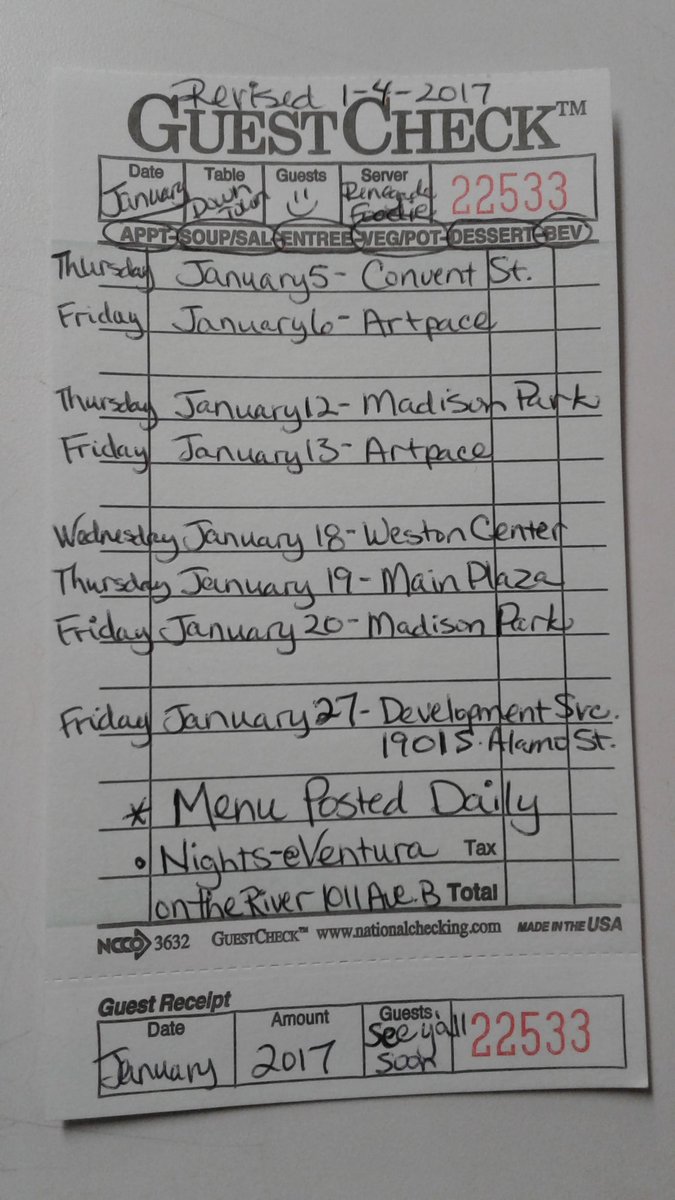 Revised 1-4-2017
GUESTCHECK™
Date Table Guests Server
January Down Town Renegade Foodie 22533
APPT-SOUP/SAL-ENTREE-VEG/POT-DESSERT-BEV
Thursday January 5- Convent St.
Friday January 6- Artpace
Thursday January 12- Madison Park
Friday January 13- Artpace
Wednesday January 18- Weston Center
Thursday January 19- Main Plaza
Friday January 20- Madison Park
Friday January 27- Development Srvc.
1901 S. Alamo St.
* Menu Posted Daily
• Nights-@Ventura Tax
on the River 1011 Ave. B Total
NCCO 3632 GUESTCHECK™ www.nationalchecking.com MADE IN THE USA
Guest Receipt
Date Amount Guests
January 2017 See ya'll soon 22533